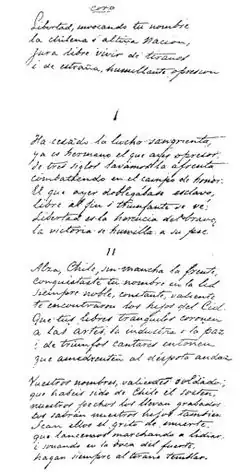 coro
Libertad, invocando tu nombre
la chilena i altiva nacion,
jura libre vivir de tiranos
i de estraña, humillante opresion
I
Ha cesado la lucha sangrienta,
ya es hermano el que ayer opresor
de tres siglos lavamos la afrenta
combatiendo en el campo de honor.
El que ayer doblegábase esclavo
libre al fin i triunfante se vé;
Libertad es la herencia del bravo,
la victoria se humilla a su pie.
II
Alza, Chile, sin mancha la frente,
conquistaste tu nombre en la lid
siempre noble, constante, valiente
te encontraron los hijos del Cid.
Que tus libres tranquilos coronen
a las artes, la industria i la paz
i de triunfos cantares entonen
que amedrenten al déspota audaz
Vuestros nombres, valientes soldados
que habeis sido de Chile el sosten,
nuestros pechos los llevan grabados
los sabrán nuestros hijos tambien
Sean ellos el grito de muerte,
que lancemos marchando a lidiar,
i sonando en la boca del fuerte,
hagan siempre al tirano temblar.